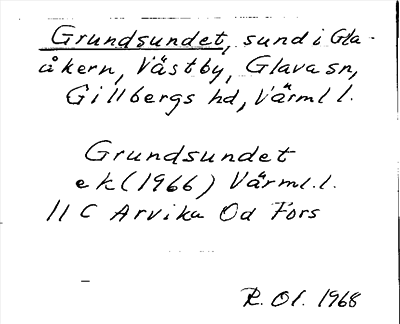 Grundsundet, sund i Gla-
åkern, Västby, Glava sn,
Gillbergs hd, Värml l.
Grundsundet
ek (1966) Värml. l.
11 C Arvika Od Fors
R. Ol. 1968